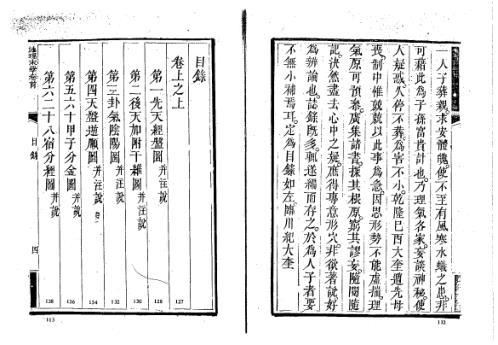 一人子葬親求安體魄使不至有風寒水蟻之患非
可藉此為子孫富貴計也乃理氣各家妄談神秘使
人疑惑久停不葬為害不小乾隆己酉大奎遭先母
喪制中惟兢兢以此事為急因思形勢不能虛揣理
氣原可預參廣集諸書探其根原窮其謬妄隨閱隨
記決然盡去心中之疑庶得專意形穴非欲著書好
為辨論也誌錄既多輒遂編而存之於為人子者要
不無小補焉耳定為目錄如左臨川紀大奎
目錄
卷上之上
第一先天經盤圖 并注說 127
第二後天加附干維圖 并注說 128
第三卦氣陰陽圖 并注說 132
第四天盤逆順圖 并注說 134
第五六十甲子分金圖 并說 136
第六二十八宿分經圖 并說 138
地理末學卷首
目錄
四
113
112